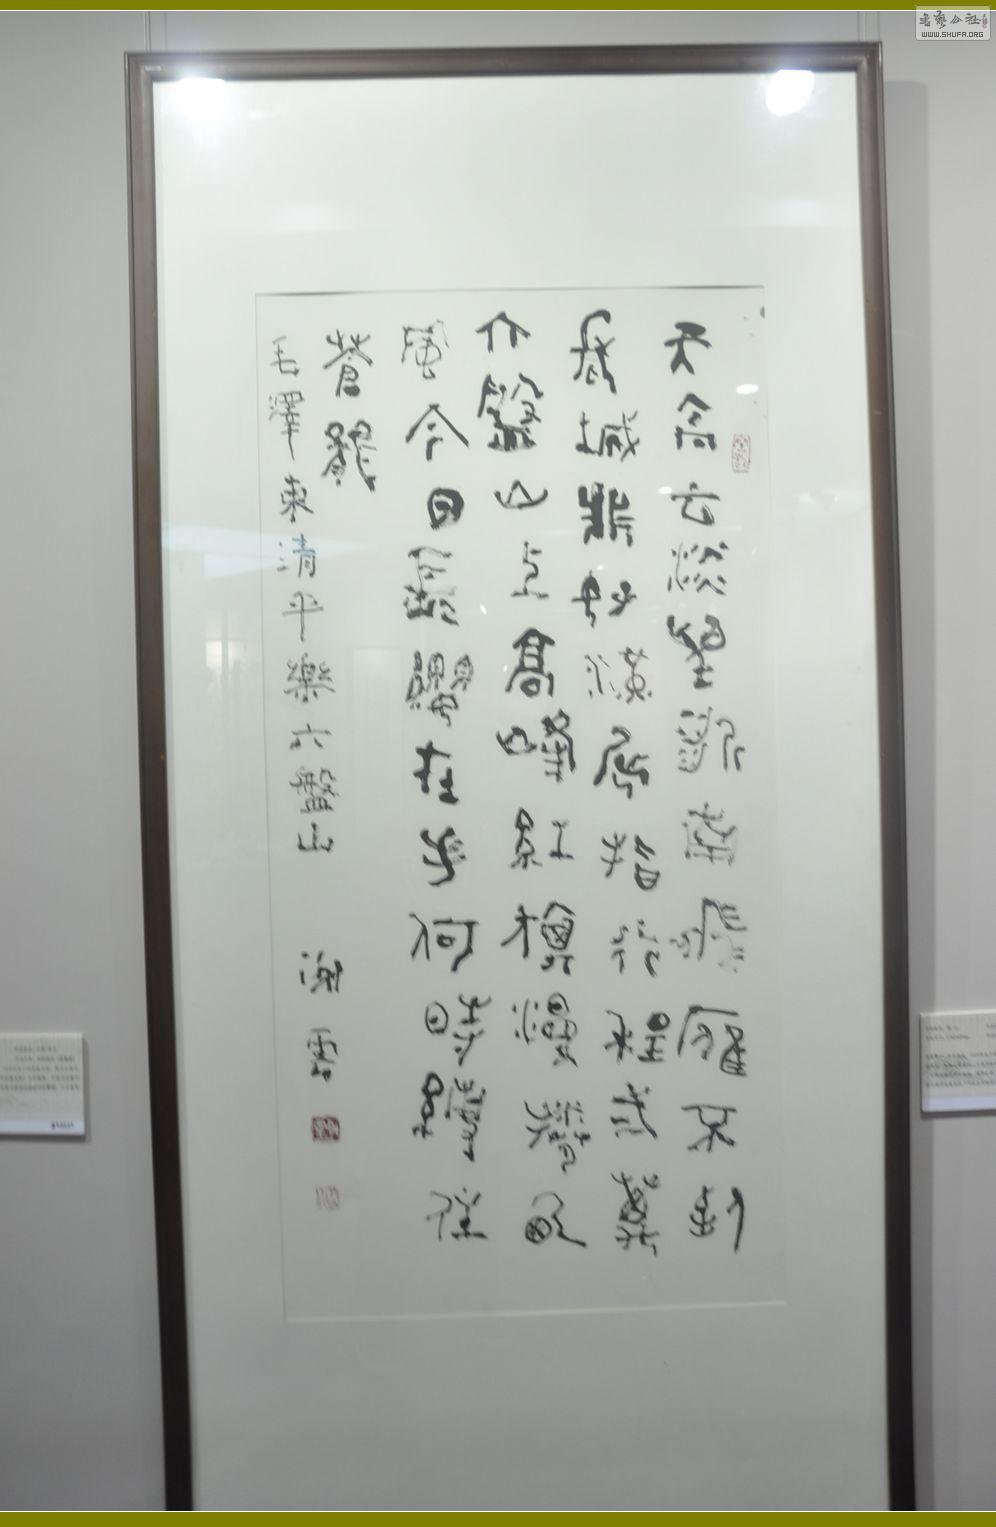 天高云淡望斷南飛雁不到
長城非好漢屈指行程弍萬
六盤山上高峰紅旗漫卷西
風今日長纓在手何時縛住
蒼龍
毛澤東清平樂六盤山 謝雲
書藝公社
WWW.SHUFA.ORG